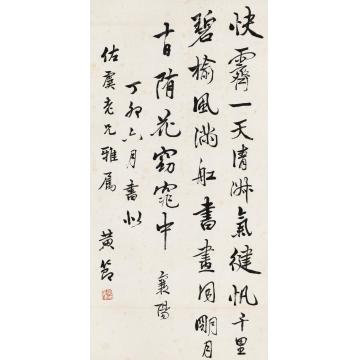 快霽一天清淑氣健帆千里
碧榆風滿舡書畫同明月
十日随花窈窕中 襄陽
丁卯六月書似
佐虞老兄雅属 黃節